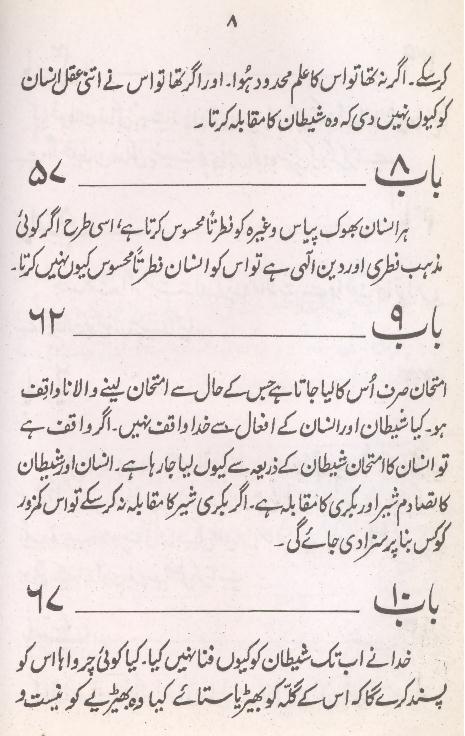 ۸
کر سکے۔ اگر نہ تھا تو اس کا علم محدود ہُوا۔ اور اگر تھا تو اس نے اتنی عقل انسان
کو کیوں نہیں دی کہ وہ شیطان کا مقابلہ کرتا۔
باب ۸ ــــــــــــــــ ۵۷
ہر انسان بھوک پیاس وغیرہ کو فطرتاً محسوس کرتا ہے، اسی طرح اگر کوئی
مذہب فطری اور دین الٰہی ہے تو اس کو انسان فطرتاً محسوس کیوں نہیں کرتا۔
باب ۹ ــــــــــــــــ ۶۲
امتحان صرف اُس کا لیا جاتا ہے جس کے حال سے امتحان لینے والا ناواقف
ہو۔ کیا شیطان اور انسان کے افعال سے خدا واقف نہیں۔ اگر واقف ہے
تو انسان کا امتحان شیطان کے ذریعہ سے کیوں لیا جا رہا ہے۔ انسان اور شیطان
کا تصادم شیر اور بکری کا مقابلہ ہے۔ اگر بکری شیر کا مقابلہ نہ کر سکے تو اس کمزور
کو کس بنا پر سزا دی جائے گی۔
باب ۱۰ ــــــــــــــــ ۶۷
خدا نے اب تک شیطان کو کیوں فنا نہیں کیا۔ کیا کوئی چرواہا اس کو
پسند کرے گا کہ اس کے گلّہ کو بھیڑیا ستائے کیا وہ بھیڑیے کو نیست و